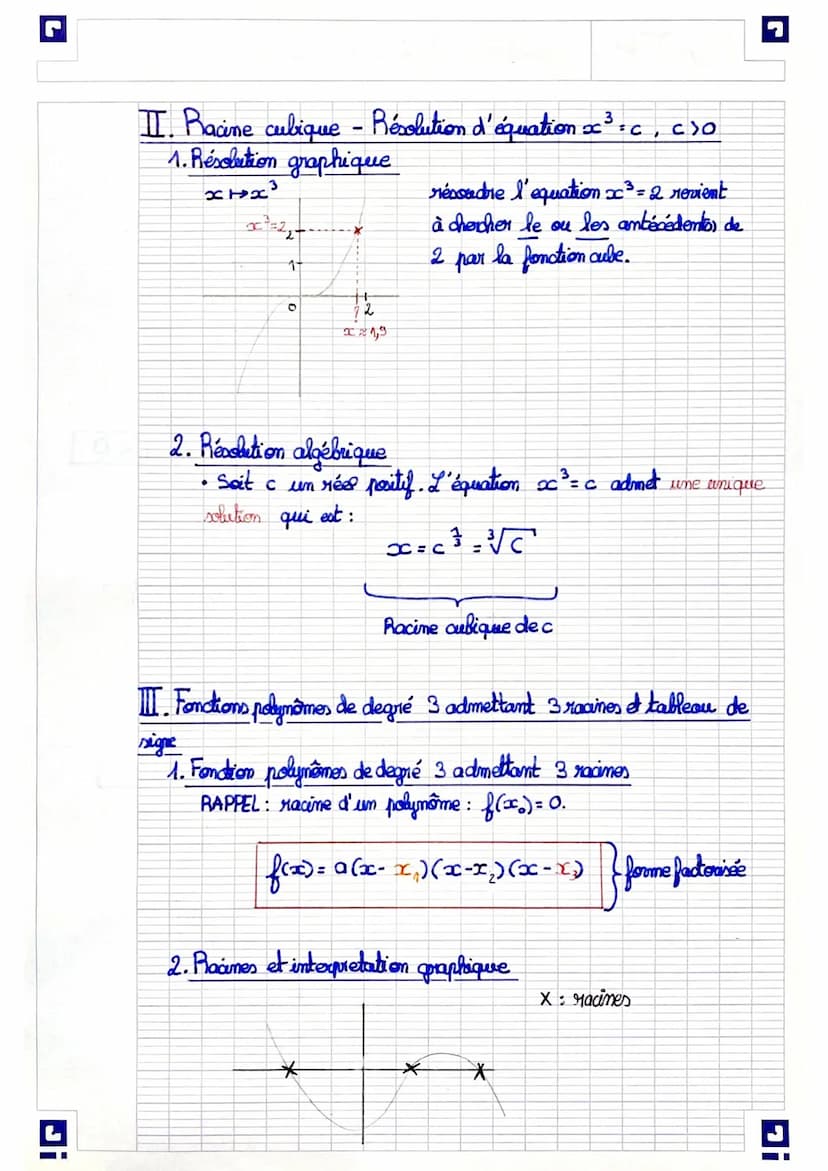 II. Racine cubique - Résolution d'équation x³ = c, c > 0
1. Résolution graphique
x ↦ x³
résoudre l'equation x³ = 2 revient
à chercher le ou les antécédent(s) de
2 par la fonction cube.
x³=2
2
1
0
?
2
x ≈ 1,9
2. Résolution algébrique
• Soit c un réel positif. L'équation x³ = c admet une unique
solution qui est :
x = c^(1/3) = ³√c
Racine cubique de c
III. Fonctions polynômes de degré 3 admettant 3 racines et tableau de
signe
1. Fonction polynômes de degré 3 admettant 3 racines
RAPPEL : racine d'un polynôme : f(x₀) = 0.
f(x) = a(x - x₁)(x - x₂)(x - x₃) } forme factorisée
2. Racines et interpretation graphique
X : racines